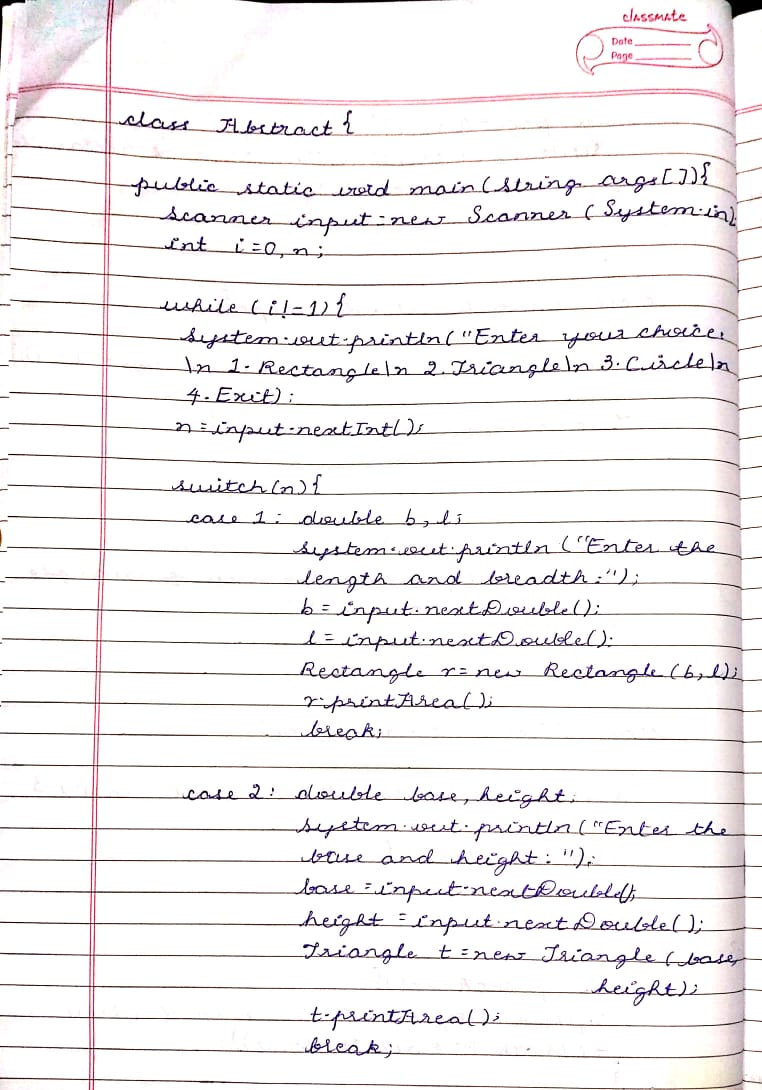 classmate
Date
Page
class Abstract {
public static void main (String args[]){
Scanner input = new Scanner (System.in);
int i=0, n;
while (i!=1){
System.out.println("Enter your choice:
\n 1. Rectangle\n 2. Triangle\n 3. Circle\n
4. Exit);
n = input.nextInt();
switch(n){
case 1: double b, l;
System.out.println ("Enter the
length and breadth:");
b = input.nextDouble();
l = input.nextDouble();
Rectangle r = new Rectangle (b, l);
r.printArea();
break;
case 2: double base, height;
System.out.println ("Enter the
base and height: ");
base = input.nextDouble();
height = input.nextDouble();
Triangle t = new Triangle (base,
height);
t.printArea();
break;